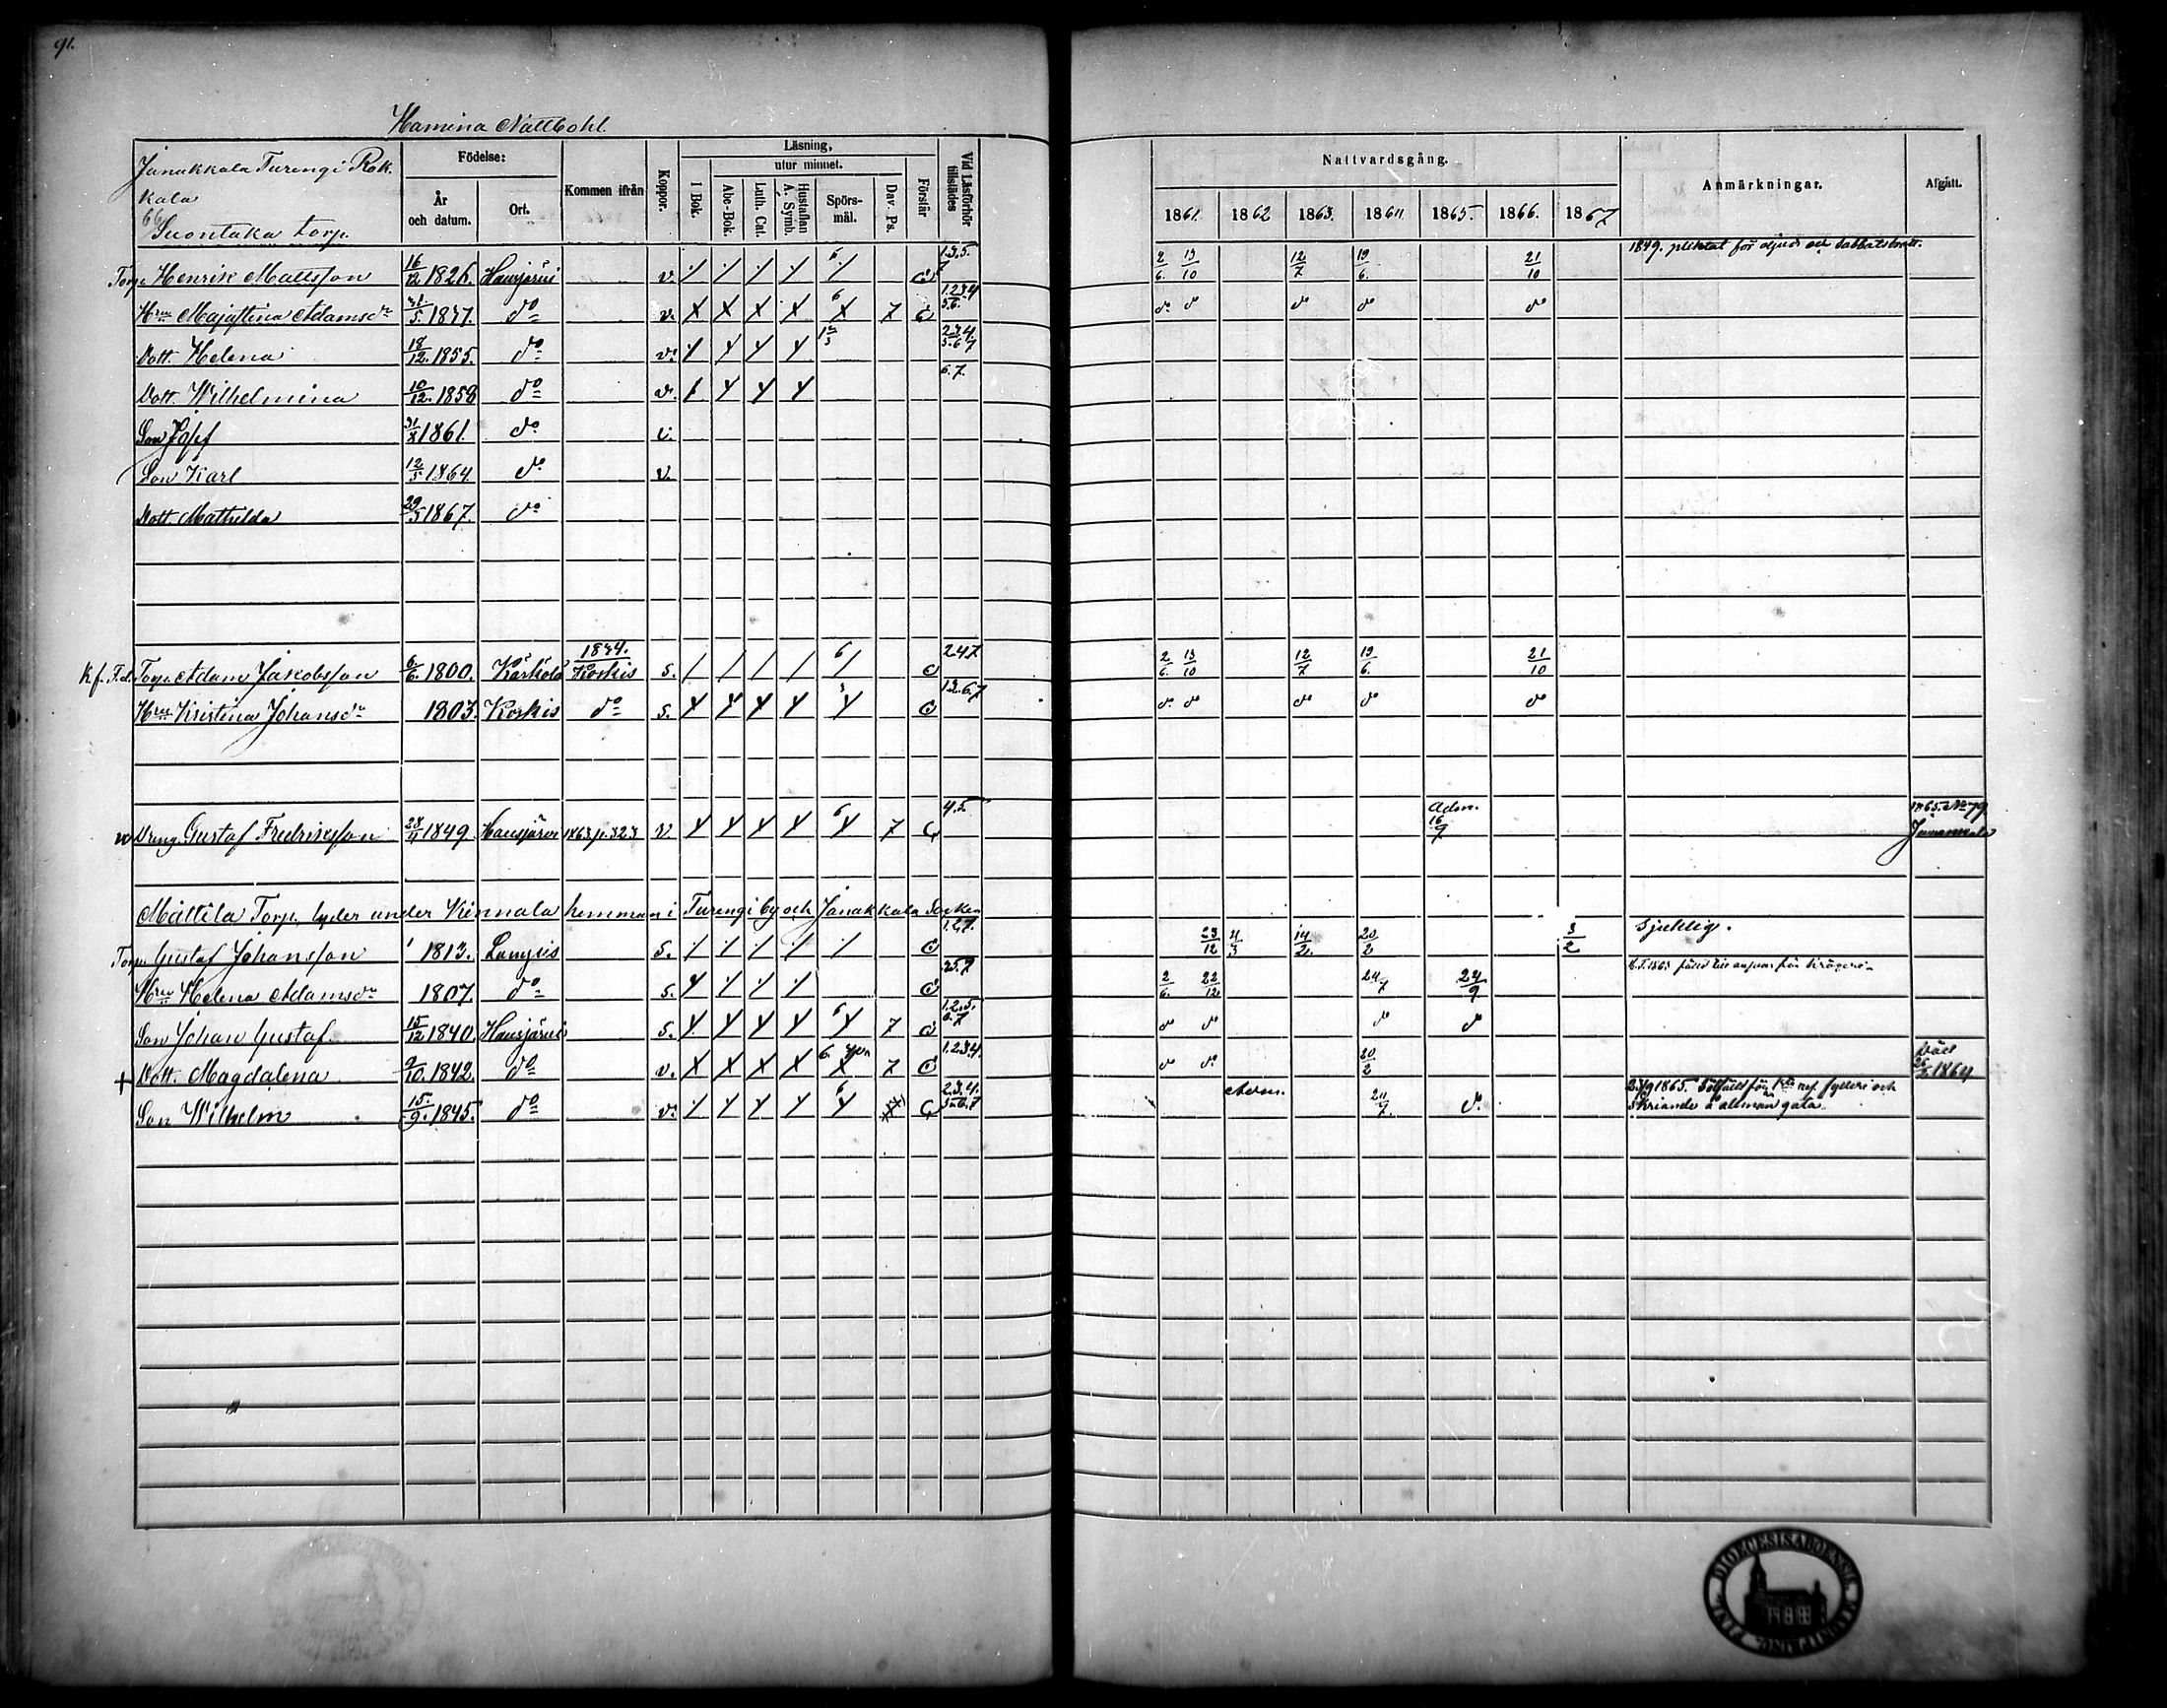 91.
Hamina Nattbohl.
Janakkala Turengi Rok.
kala
Suontaka torp.
Födelse:
År och datum.
Ort.
Kommen ifrån
Koppor.
Läsning,
utur minnet.
I Bok.
Abc-Bok.
Luth. Cat.
Hustaflan A. Symb.
Spörs-mål.
Dav. Ps.
Förstår
Vid Läsförhör tillstädes
Nattvardsgång.
1861. 1862 1863. 1864. 1865. 1866. 1867
Anmärkningar.
Afgått.
Torp. Henrik Mattsson 16/12 1826. Hausjärvi v. 6 1.3.5. 7 2/6. 13/10 12/7 19/6. 21/10 1849. pliktat för och sabbatsbrott.
Hru Majastina Adamsdr 31/5. 1837. do v. 6 7 1.2.3.4 5.6. do do do do do
Dott. Helena 18/12. 1855. do v. 2.3.4 5.6.7
Dott. Wilhelmina 10/12. 1858 do v. 6.7.
Son Josef 1861. do v.
Son Karl 12/5 1864. do v.
Dott. Mathilda 29/5 1867. do
K.f. F.d. Torp. Adam Jakobsson 6/6. 1800. Kärkölä 1844. Koskis s. 6 2.4.7 2/6. 13/10 12/7 19/6. 21/10
Hru Kristina Johansdr 1803. Koskis do s. 3 1.3.6.7 do do do do do
Dreng. Gustaf Fredriksson 28/4 1849. Hausjärvi 1863 p. 323 v. 6 7 4.5. Adm. 16/9 1865. No 79 Janakkala
Mattila Torp. lyder under Kinnala hemman i Turengi by och Janakkala Socken
Torp. Gustaf Johansson 1813. Lampis s. 1.2.7. 23/12 4/3 14/2. 20/2 3/2 Sjuklig.
Hru Helena Adamsdr 1807. do s. 2.5.7 2/6. 22/12. 24/7 24/9
Son Johan Gustaf. 15/12 1840. Hausjärvi s. 6 7 1.2.5. 6.7 do do do do
† Dott. Magdalena 9/10. 1842. do v. 6. 7 1.2.3.4. do do. 20/2 Död 26/2 1864
Son Wilhelm 15/9. 1845. do v. 6 2.3.4. 5.6.7 Adm. 24/7. do. 1865. Sakfälld för fylleri och skriande å allmän gata.
DIOECESIS ABOENSIS